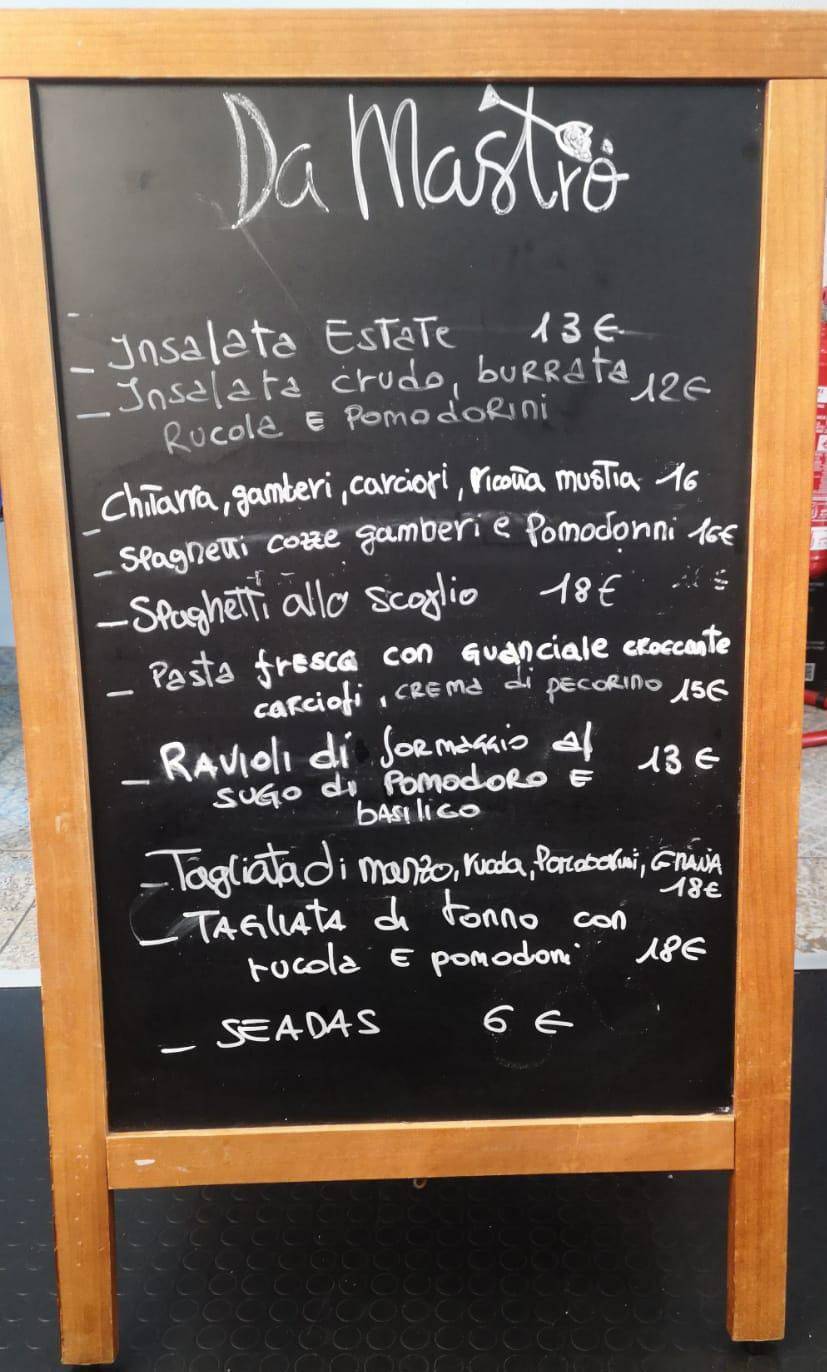 Da Mastrò
- Insalata Estate 13€
- Insalata crudo, burrata 12€
Rucola e Pomodorini
- Chitarra, gamberi, carciofi, ricotta mustia 16
- Spaghetti cozze gamberi e Pomodorini 16€
- Spaghetti allo scoglio 18€
- Pasta fresca con guanciale croccante
carciofi, crema di pecorino 15€
- RAVIOLI di formaggio al 13€
SUGO di POMODORO E
basilico
- Tagliata di manzo, rucola, Pomodorini, GRANA
18€
- TAGLIATA di tonno con
rucola E pomodori 18€
- SEADAS 6 €